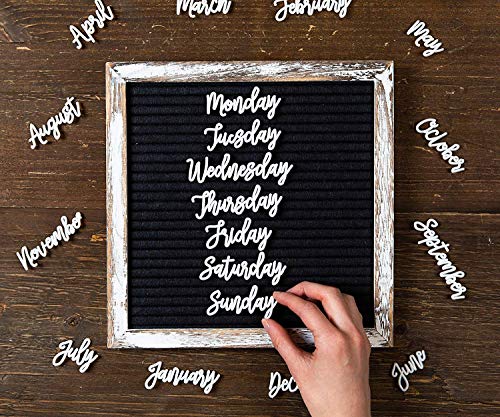 March
February
April
May
Monday
Tuesday
Wednesday
Thursday
Friday
Saturday
Sunday
August
October
November
September
July
January
Dec
June